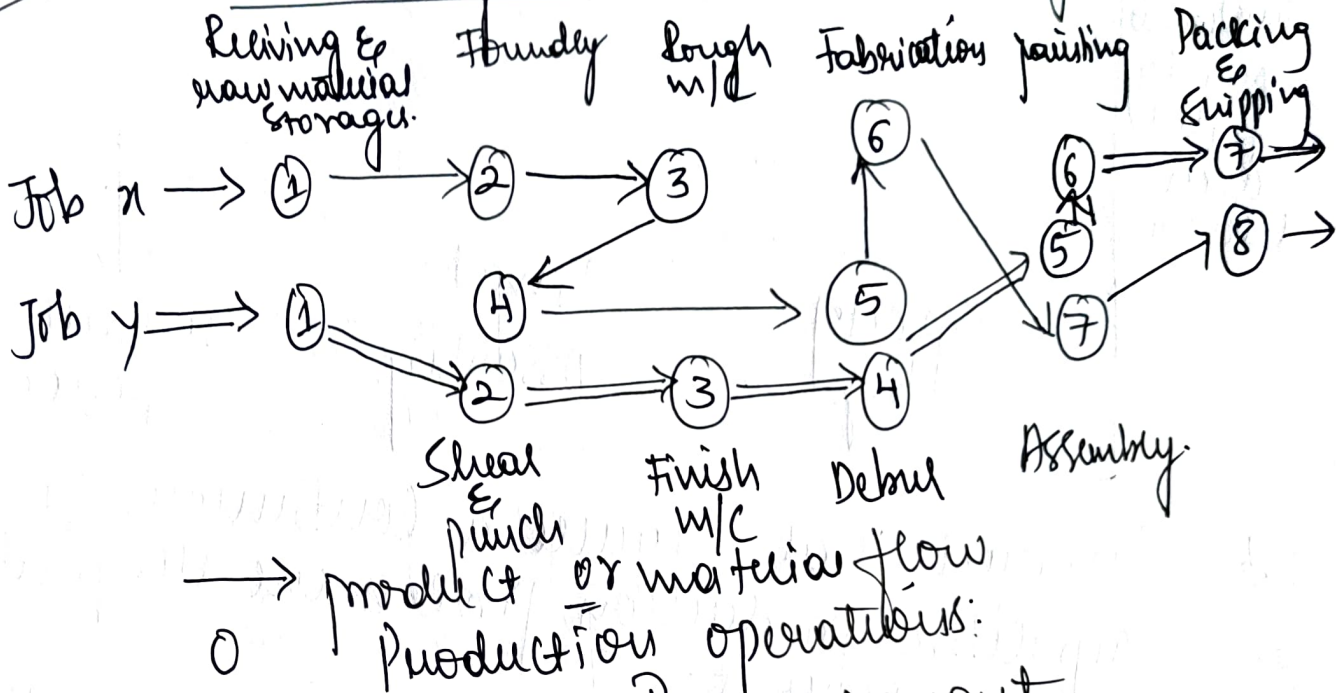 Reciving & raw material storage. Foundry Rough m/c Fabrication painting Packing & Shipping
Job x → 1 → 2 → 3 6 6 ⇒ 7
5
Job y ⇒ 1 4 → 5 7 8 →
2 ⇒ 3 ⇒ 4
Shear & punch Finish m/c Debur Assembly.
→ product or material flow
O Production operations: